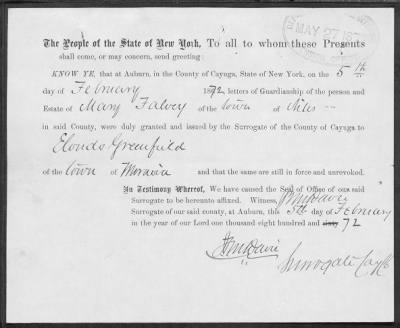 MAY 27 187
The People of the State of New York, To all to whom these Presents
shall come, or may concern, send greeting:
KNOW YE, that at Auburn, in the County of Cayuga, State of New York, on the 5th
day of February 1872, letters of Guardianship of the person and
Estate of Mary Falvey of the town of Niles
in said County, were duly granted and issued by the Surrogate of the County of Cayuga to
Greenfield
of the town of Moravia and that the same are still in force and unrevoked.
In Testimony Whereof, We have caused the Seal of Office of our said
Surrogate to be hereunto affixed. Witness,
Surrogate of our said county, at Auburn, this 5th day of February
in the year of our Lord one thousand eight hundred and sixty 72
Surrogate Cay Co